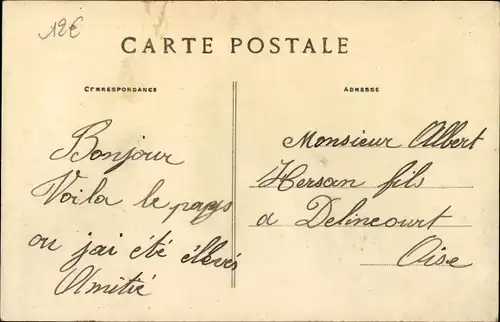 12€
CARTE POSTALE
CORRESPONDANCE
Bonjour
Voila le pays
ou j'ai été élevés
Amitié
ADRESSE
Monsieur Albert
Hersan fils
a Delincourt
Oise